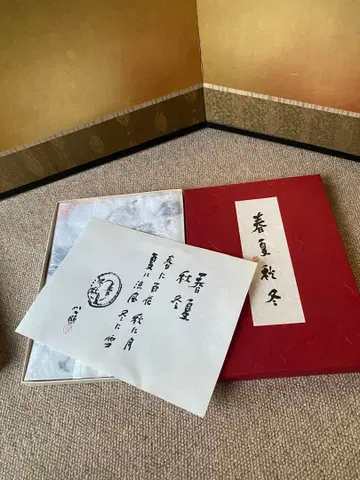 春夏秋冬
春夏
秋冬
春に百花 秋に月
夏に涼風 冬に雪